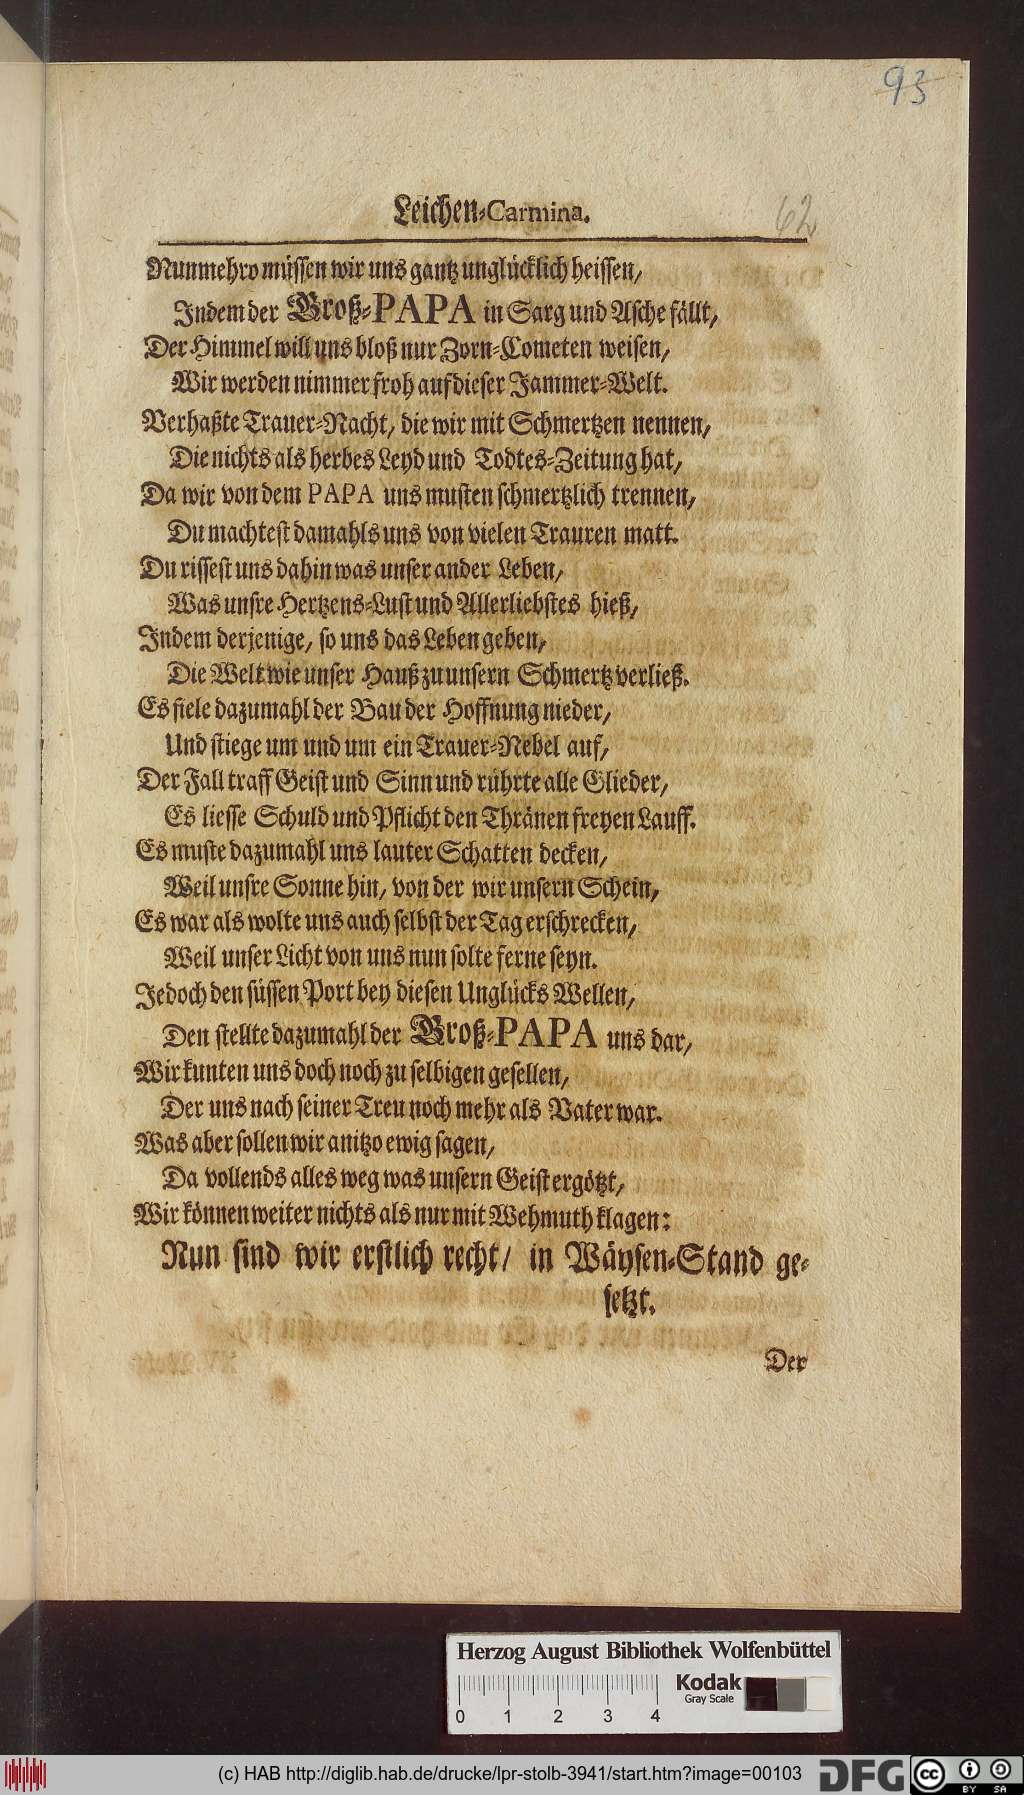 93
Leichen-Carmina.
62
Nunmehro müssen wir uns gantz unglücklich heissen,
Indem der Groß-PAPA in Sarg und Asche fällt,
Der Himmel will uns bloß nur Zorn-Cometen weisen,
Wir werden nimmer froh auf dieser Jammer-Welt.
Verhaßte Trauer-Nacht, die wir mit Schmertzen nennen,
Die nichts als herbes Leyd und Todtes-Zeitung hat,
Da wir von dem PAPA uns musten schmertzlich trennen,
Du machtest damahls uns von vielen Trauren matt.
Du rissest uns dahin was unser ander Leben,
Was unsre Hertzens-Lust und Allerliebstes hieß,
Indem derjenige, so uns das Leben geben,
Die Welt wie unser Hauß zu unsern Schmertz verließ.
Es fiele dazumahl der Bau der Hoffnung nieder,
Und stiege um und um ein Trauer-Nebel auf,
Der Fall traff Geist und Sinn und rührte alle Glieder,
Es liesse Schuld und Pflicht den Thränen freyen Lauff.
Es muste dazumahl uns lauter Schatten decken,
Weil unsre Sonne hin, von der wir unsern Schein,
Es war als wolte uns auch selbst der Tag erschrecken,
Weil unser Licht von uns nun solte ferne seyn.
Jedoch den süssen Port bey diesen Unglücks Wellen,
Den stellte dazumahl der Groß-PAPA uns dar,
Wir kunten uns doch noch zu selbigen gesellen,
Der uns nach seiner Treu noch mehr als Vater war.
Was aber sollen wir anitzo ewig sagen,
Da vollends alles weg was unsern Geist ergötzt,
Wir können weiter nichts als nur mit Wehmuth klagen:
Nun sind wir erstlich recht/ in Wäysen-Stand ge-
setzt.
Der
Herzog August Bibliothek Wolfenbüttel
Kodak
Gray Scale
0 1 2 3 4
(c) HAB http://diglib.hab.de/drucke/lpr-stolb-3941/start.htm?image=00103
DFG
cc
BY SA